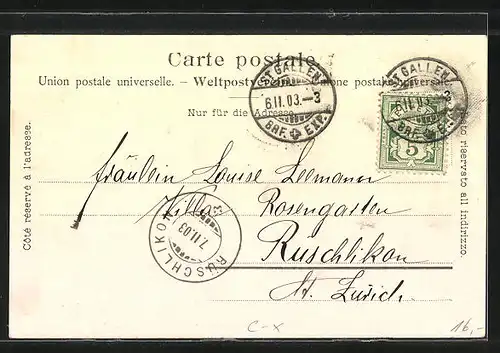 Carte postale.
Union postale universelle. – Weltpostverein. – Unione postale universale.
Nur für die Adresse.
Côté réservé à l'adresse.
Lato riservato all indirizzo.
ST. GALLEN
6.II.03.–3
BRF. EXP.
ST. GALLEN
6.II.03.
BRF. EXP.
5
Fräulein Louise Leemann
Villa Rosengarten
Rüschlikon
Kt. Zürich.
RÜSCHLIKON
7.II.03
C-X
16,-